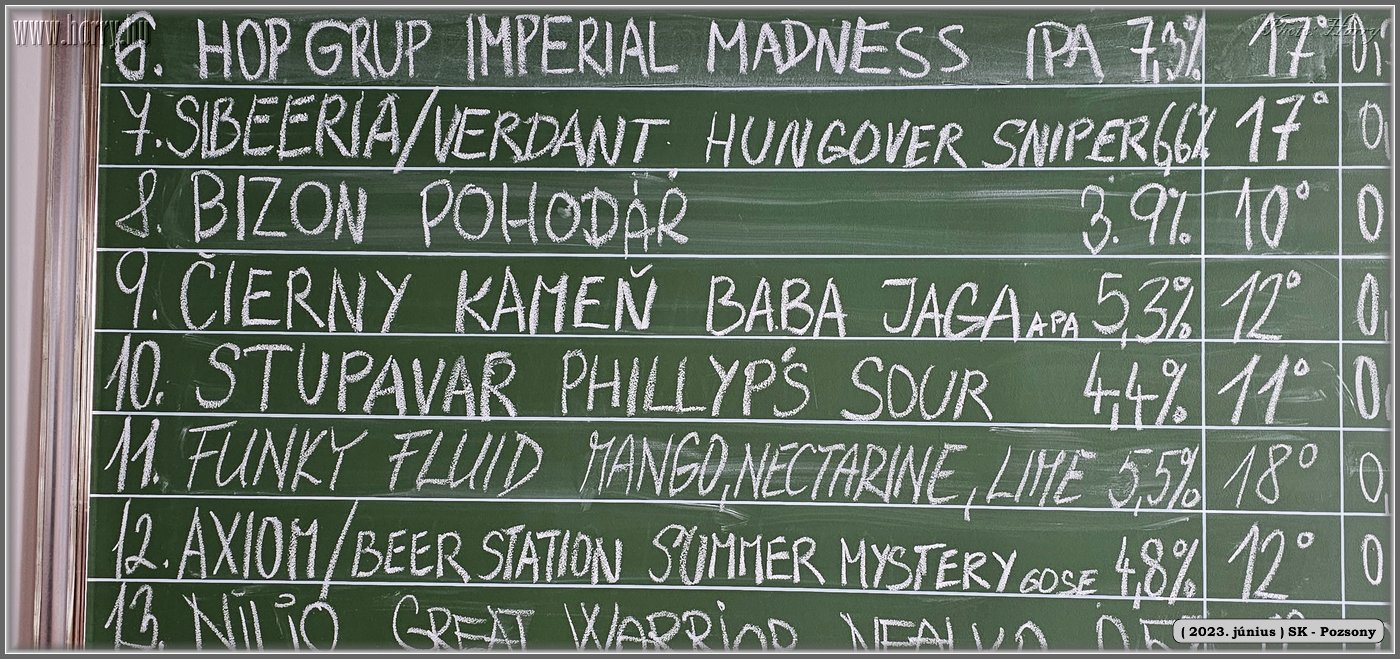 www.horry.hu
6. HOP GRUP IMPERIAL MADNESS IPA 7,3% 17° 0,
7. SIBEERIA/VERDANT HUNGOVER SNIPER 6,6% 17° 0
8. BIZON POHODÁŘ 3.9% 10° 0
9. ČIERNY KAMEŇ BABA JAGA APA 5,3% 12° 0
10. STUPAVAR PHILLYP'S SOUR 4,4% 11° 0
11. FUNKY FLUID MANGO, NECTARINE, LIME 5,5% 18° 0
12. AXIOM/BEER STATION SUMMER MYSTERY GOSE 4,8% 12° 0
13. NILIO GREAT WARRIOR NEALKO 0,5
( 2023. június ) SK - Pozsony